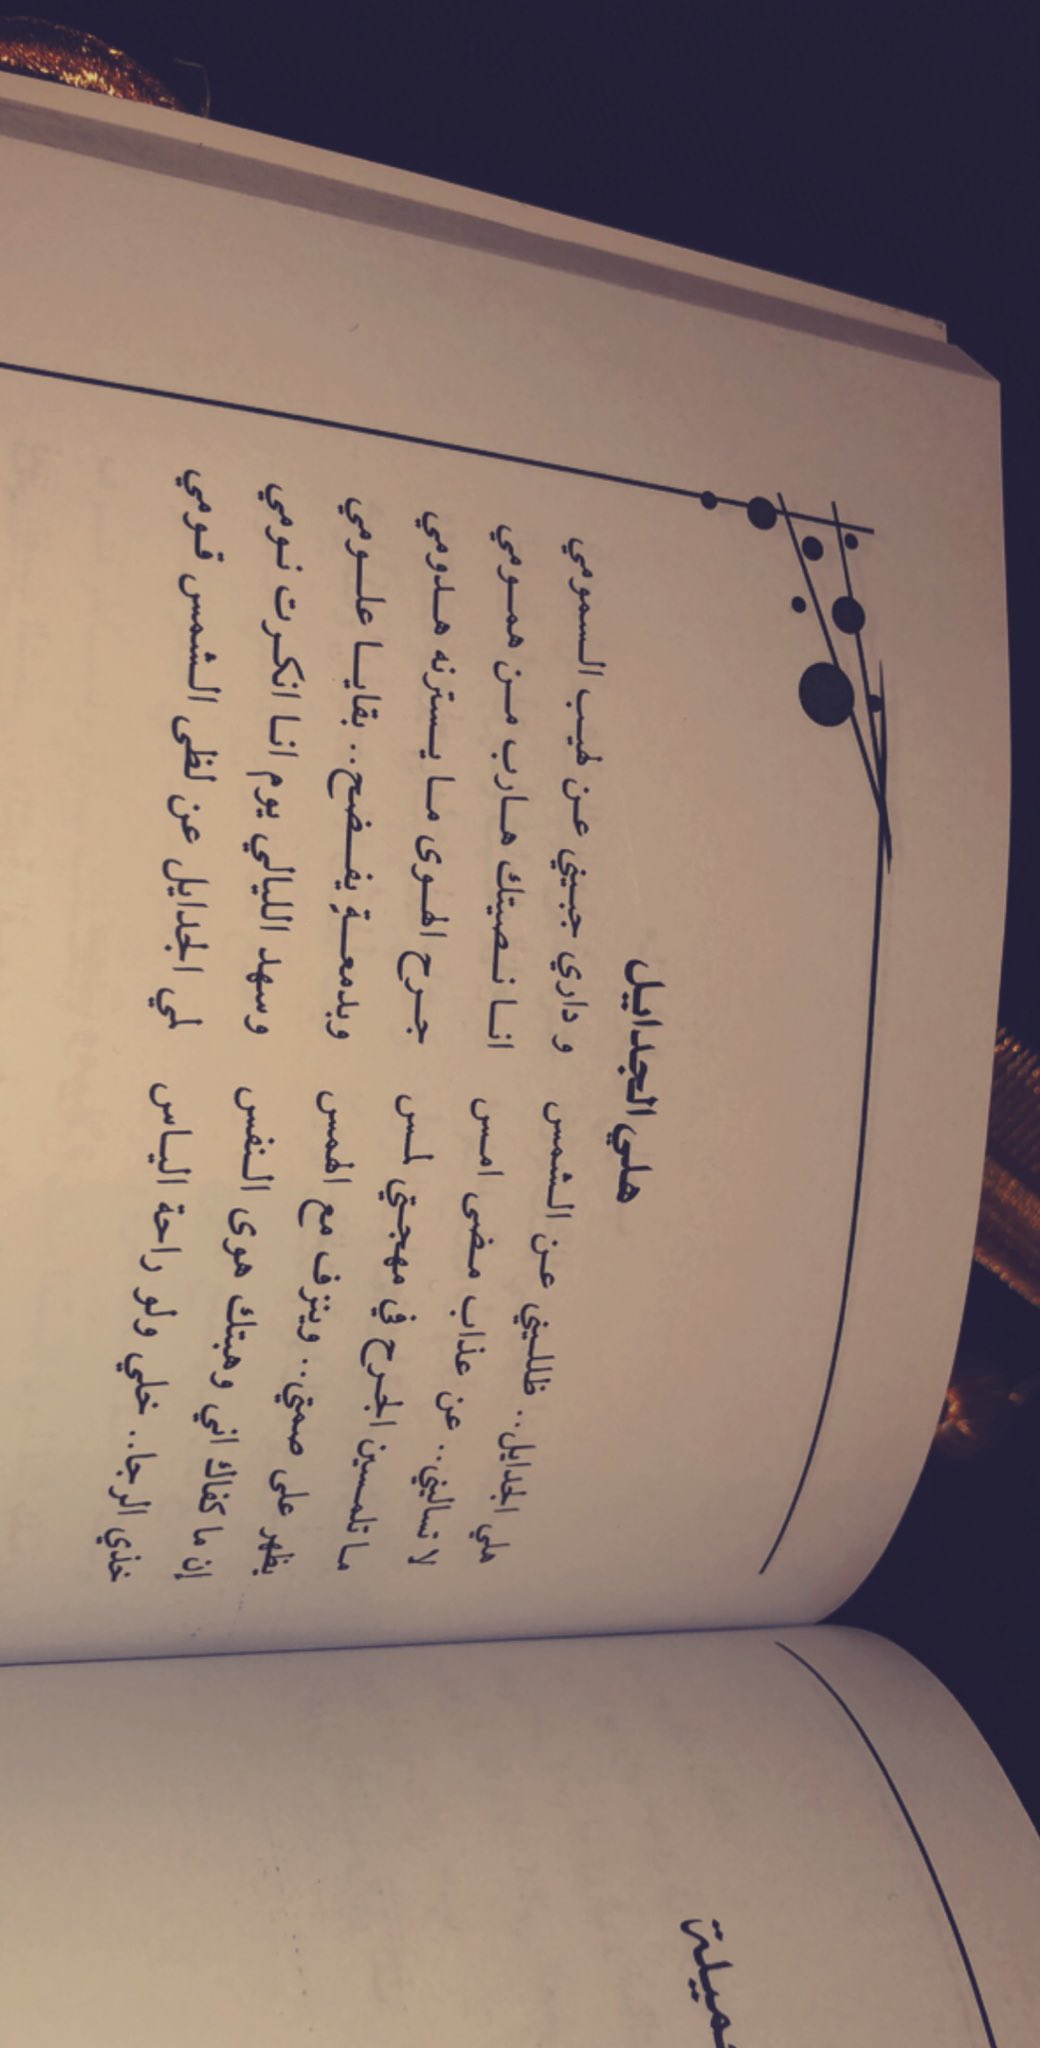 هلي الجدايل
هلي الجدايل.. ظلليني عن الشمس و داري جبيني عن لهيب السمومي
لا تساليني.. عن عذاب مضى امس انا نصيتك هارب من همومي
ما تلمسين الجرح في مهجتي لمس جرح الهوى ما يسترنه هدومي
يظهر على صمتي.. وينزف مع الهمس وبدمعةٍ يفضح.. بقايا علومي
إن ما كفاك اني وهبتك هوى النفس وسهد الليالي يوم انا انكرت نومي
خذي الرجا.. خلي ولو راحة الياس لمي الجدايل عن لظى الشمس قومي